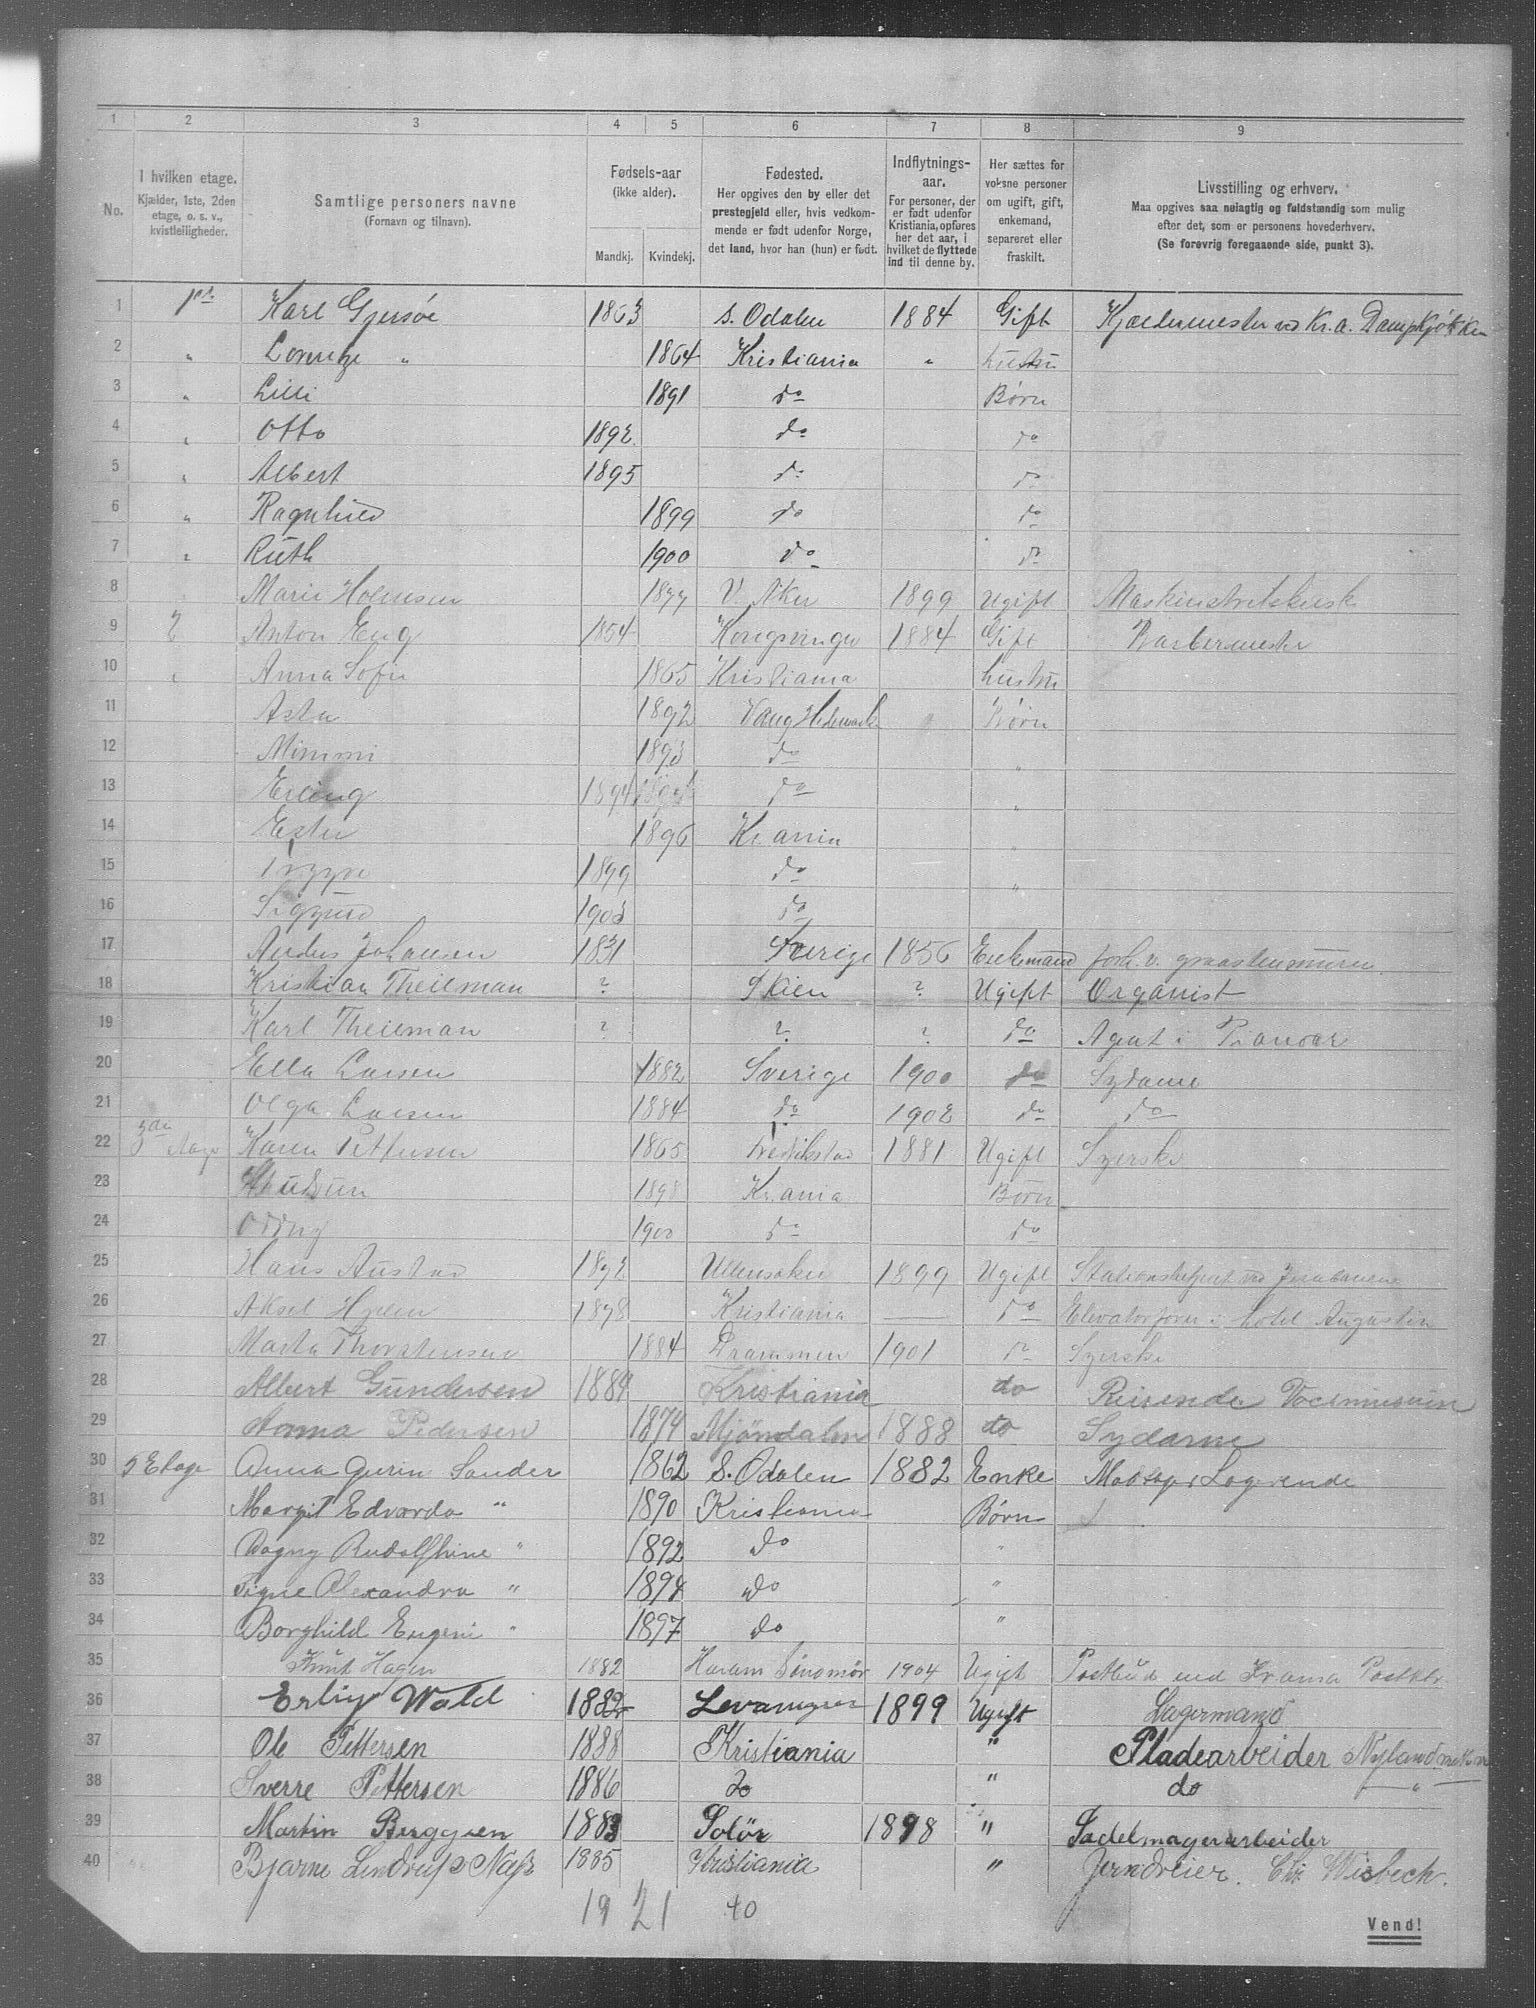 1 2 3 4 5 6 7 8 9
No.
I hvilken etage.
Kjælder, 1ste, 2den
etage, o. s. v.,
kvistleiligheder.
Samtlige personers navne
(Fornavn og tilnavn).
Fødsels-aar
(ikke alder).
Mandkj. Kvindekj.
Fødested.
Her opgives den by eller det
prestegjeld eller, hvis vedkom-
mende er født udenfor Norge,
det land, hvor han (hun) er født.
Indflytnings-
aar.
For personer, der
er født udenfor
Kristiania, opføres
her det aar, i
hvilket de flyttede
ind til denne by.
Her sættes for
voksne personer
om ugift, gift,
enkemand,
separeret eller
fraskilt.
Livsstilling og erhverv.
Maa opgives saa nøiagtig og fuldstændig som mulig
efter det, som er personens hovederhverv.
(Se forøvrig foregaaende side, punkt 3).
1 Karl Gjersøe 1863 S. Odalen 1884 Gift Kjældermester ved Kr.a. Dampkjøkken
2 " " 1864 Kristiania " hustru
3 " Lilli 1891 do Børn
4 " Otto 1892 do do
5 " Albert 1895 do do
6 " Ragnhild 1899 do do
7 " Ruth 1900 do do
8 Marie Holmsen 1877 V. Aker 1899 Ugift
9 2 Anton Eng 1854 Kongsvinger 1884 Gift Barbermester
10 " Anna Sofie 1865 Kristiania hustru
11 Asta 1892 Vang Hedemark Børn
12 Mimmi 1893 do "
13 Erling 1894 do "
14 Ester 1896 Kr.ania "
15 1899 do "
16 Sigurd 1903 do
17 Anders Johansen 1831 Sverige 1856 Enkemand
18 Kristian Theilman ? Skien ? Ugift Organist
19 Karl Theilman ? ? ? do Agent i Pianoer
20 Ella Larsen 1882 Sverige 1900 do Sydame
21 Olga Larsen 1884 do 1902 do do
22 3die Karen Pettersen 1865 Fredrikstad 1881 Ugift Syerske
23 1898 Kr.ania Børn
24 1900 do do
25 Hans Austad Ullensaker 1899 Ugift
26 Aksel 1878 Kristiania — do Elevatorfører i hotel Augustin
27 Marta Thorstensen 1884 Drammen 1901 do Syerske
28 Albert Gundersen 1889 Kristiania do Reisende
29 Anna Pedersen 1874 Mjöndalen 1888 do Sydame
30 5 Etage Anna Gurin Sander 1862 S. Odalen 1882 Enke Madsogs Logerende
31 Margit Edvarda " 1890 Kristiania Børn
32 Dagny Rudolfhine " 1892 do "
33 Signe Alexandra " 1894 do "
34 Borghild Eugeni " 1897 do "
35 Knut Hagen 1882 Haram Sönmör 1904 Ugift Postbud ved Krania Postktr
36 Wold 1882 Levanger 1899 Ugift Lagermand
37 Ole Pettersen 1888 Kristiania " Pladearbeider Nyland
38 Sverre Pettersen 1886 do " do "
39 Martin Berggren 1883 Solör 1898 " Sadelmagerarbeider
40 Bjarne Lindrup Næss 1885 Kristiania " Jerndreier. Chr. Wisbech.
19 21 40
Vend!